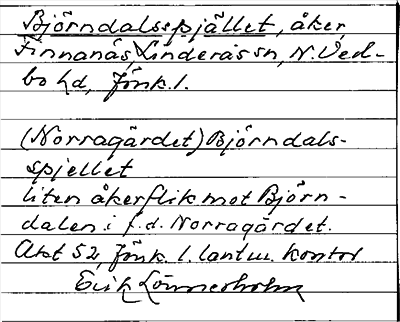 Björndalsspjället, åker,
Finnanäs, Linderås sn, N. Ved-
bo hd, Jönk. l.
(Norragärdet) Björndals-
spjellet
liten åkerflik mot Björn-
dalen i f.d. Norragärdet.
Akt 52, Jönk. l. lantm. kontor
Erik Lönnerholm